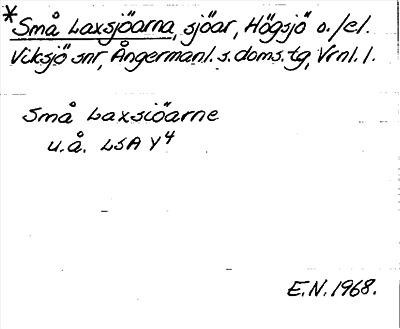 *Små Laxsjöarna, sjöar, Högsjö o./el.
Viksjö snr, Ångermanl. s. doms. tg, Vrnl. l.
Små Laxsiöarne
u.å. LSA Y4
E.N. 1968.